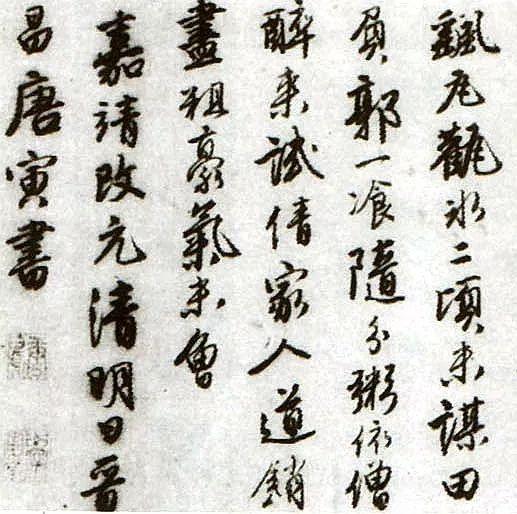 飄瓦冰二頃未謀田
負郭一飡隨分粥依僧
醉來試倩家人道銷
盡粗豪氣未曾
嘉靖改元清明日晉
昌唐寅書